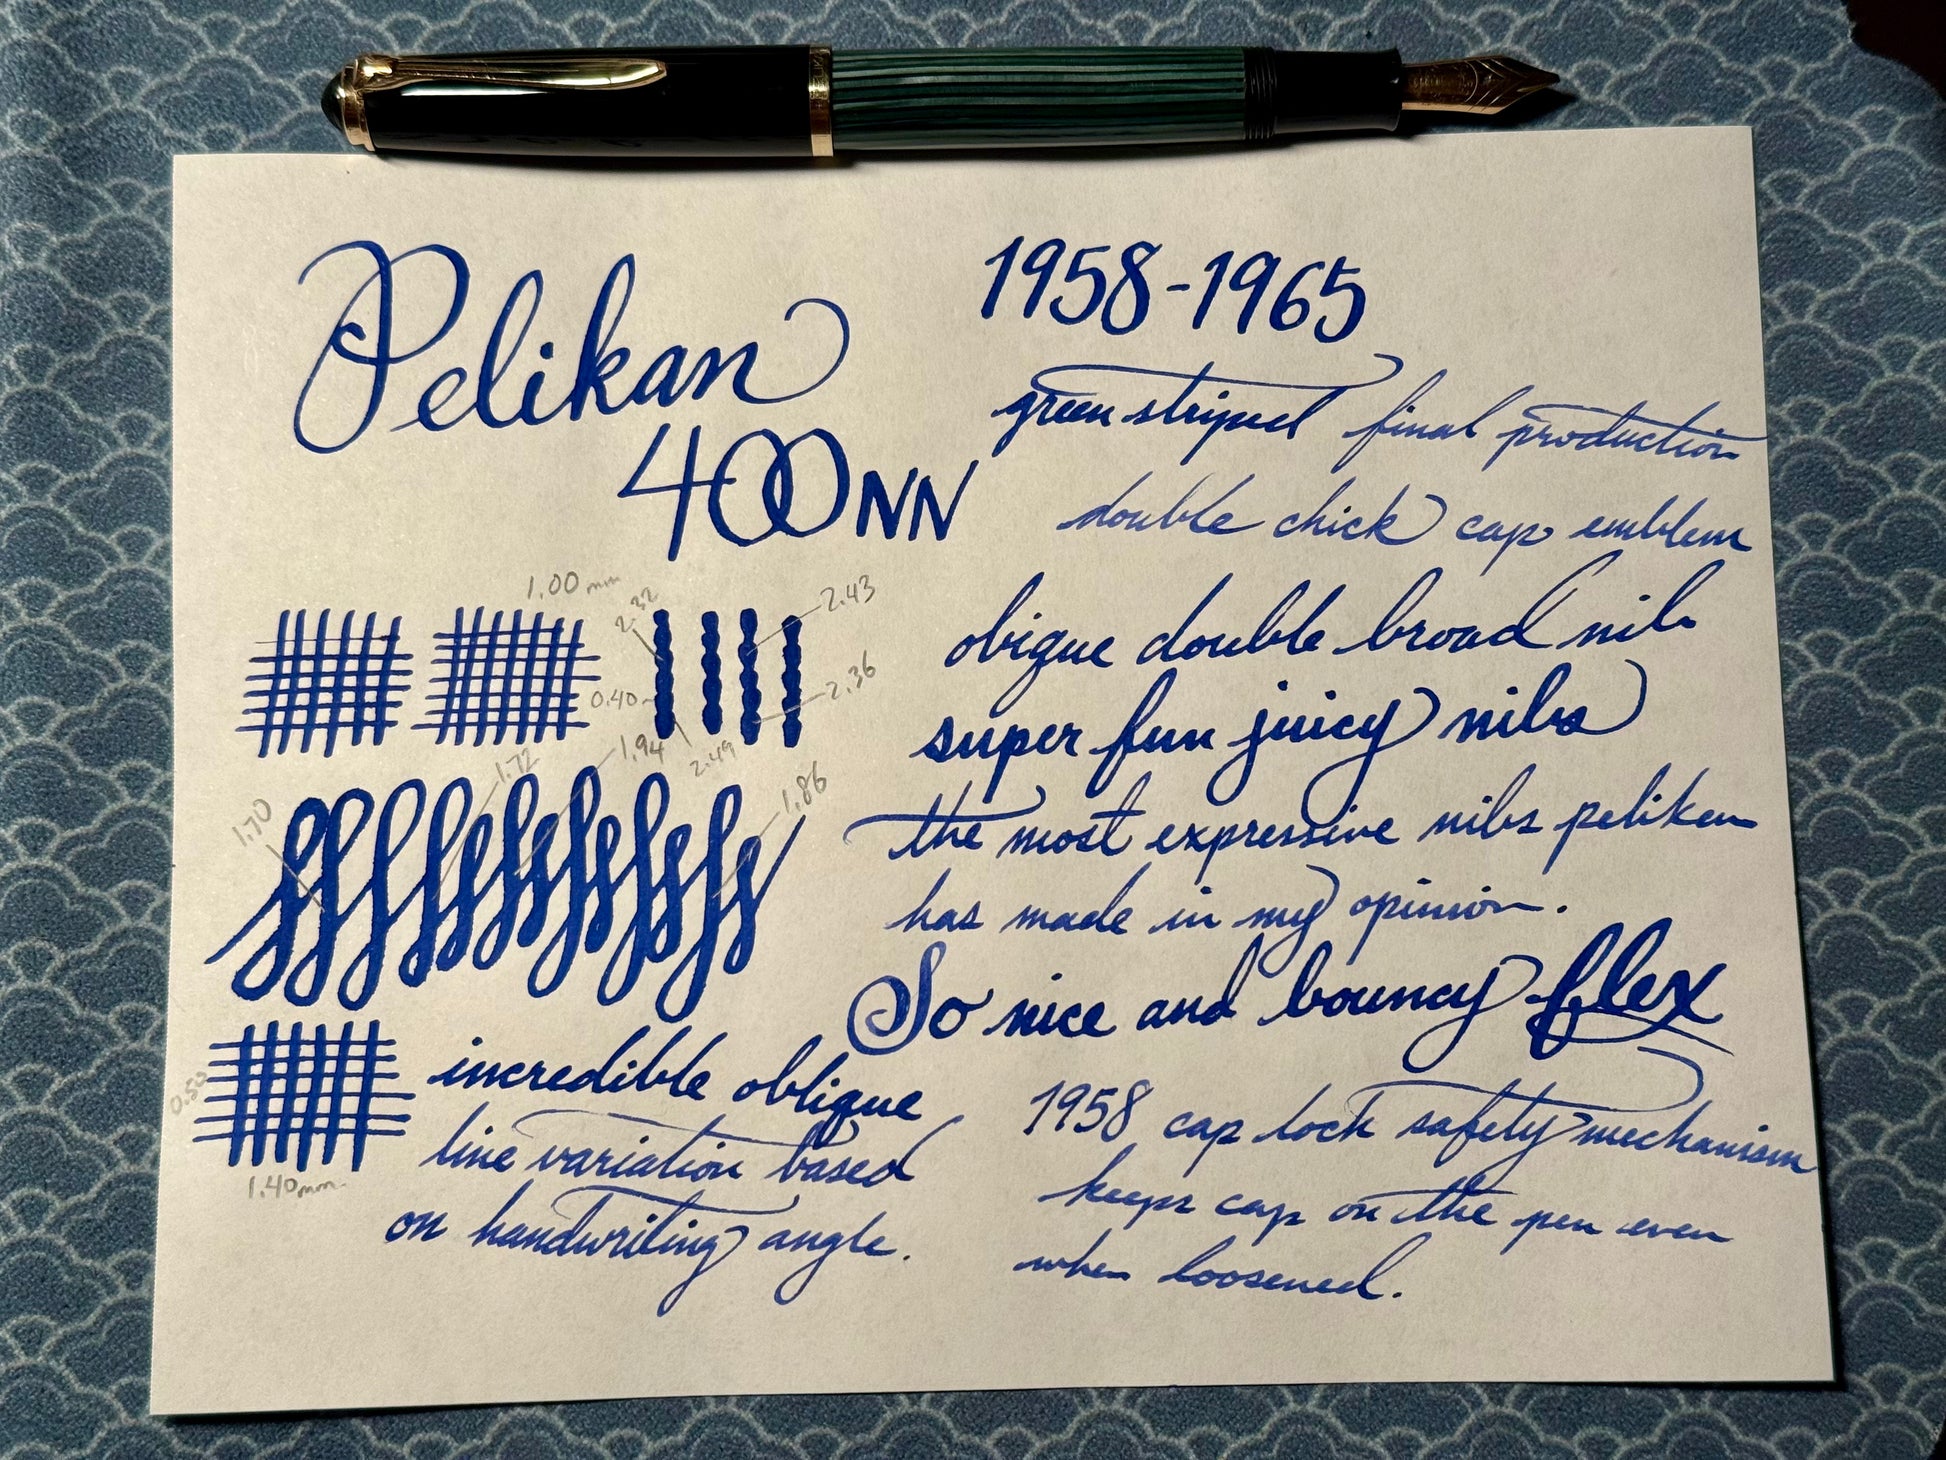 Pelikan
400NN
1958-1965
green striped final production
double chick cap emblem
obique double broad nib
super fun juicy nibs
the most expressive nibs pelikan
has made in my opinion.
So nice and bouncy flex
1958 cap lock safety mechanism
keeps cap on the pen even
when loosened.
1.00 mm
2.32
2.43
0.40
2.36
2.49
1.72
1.94
1.70
1.86
0.50
1.40mm.
incredible oblique
line variation based
on handwriting angle.